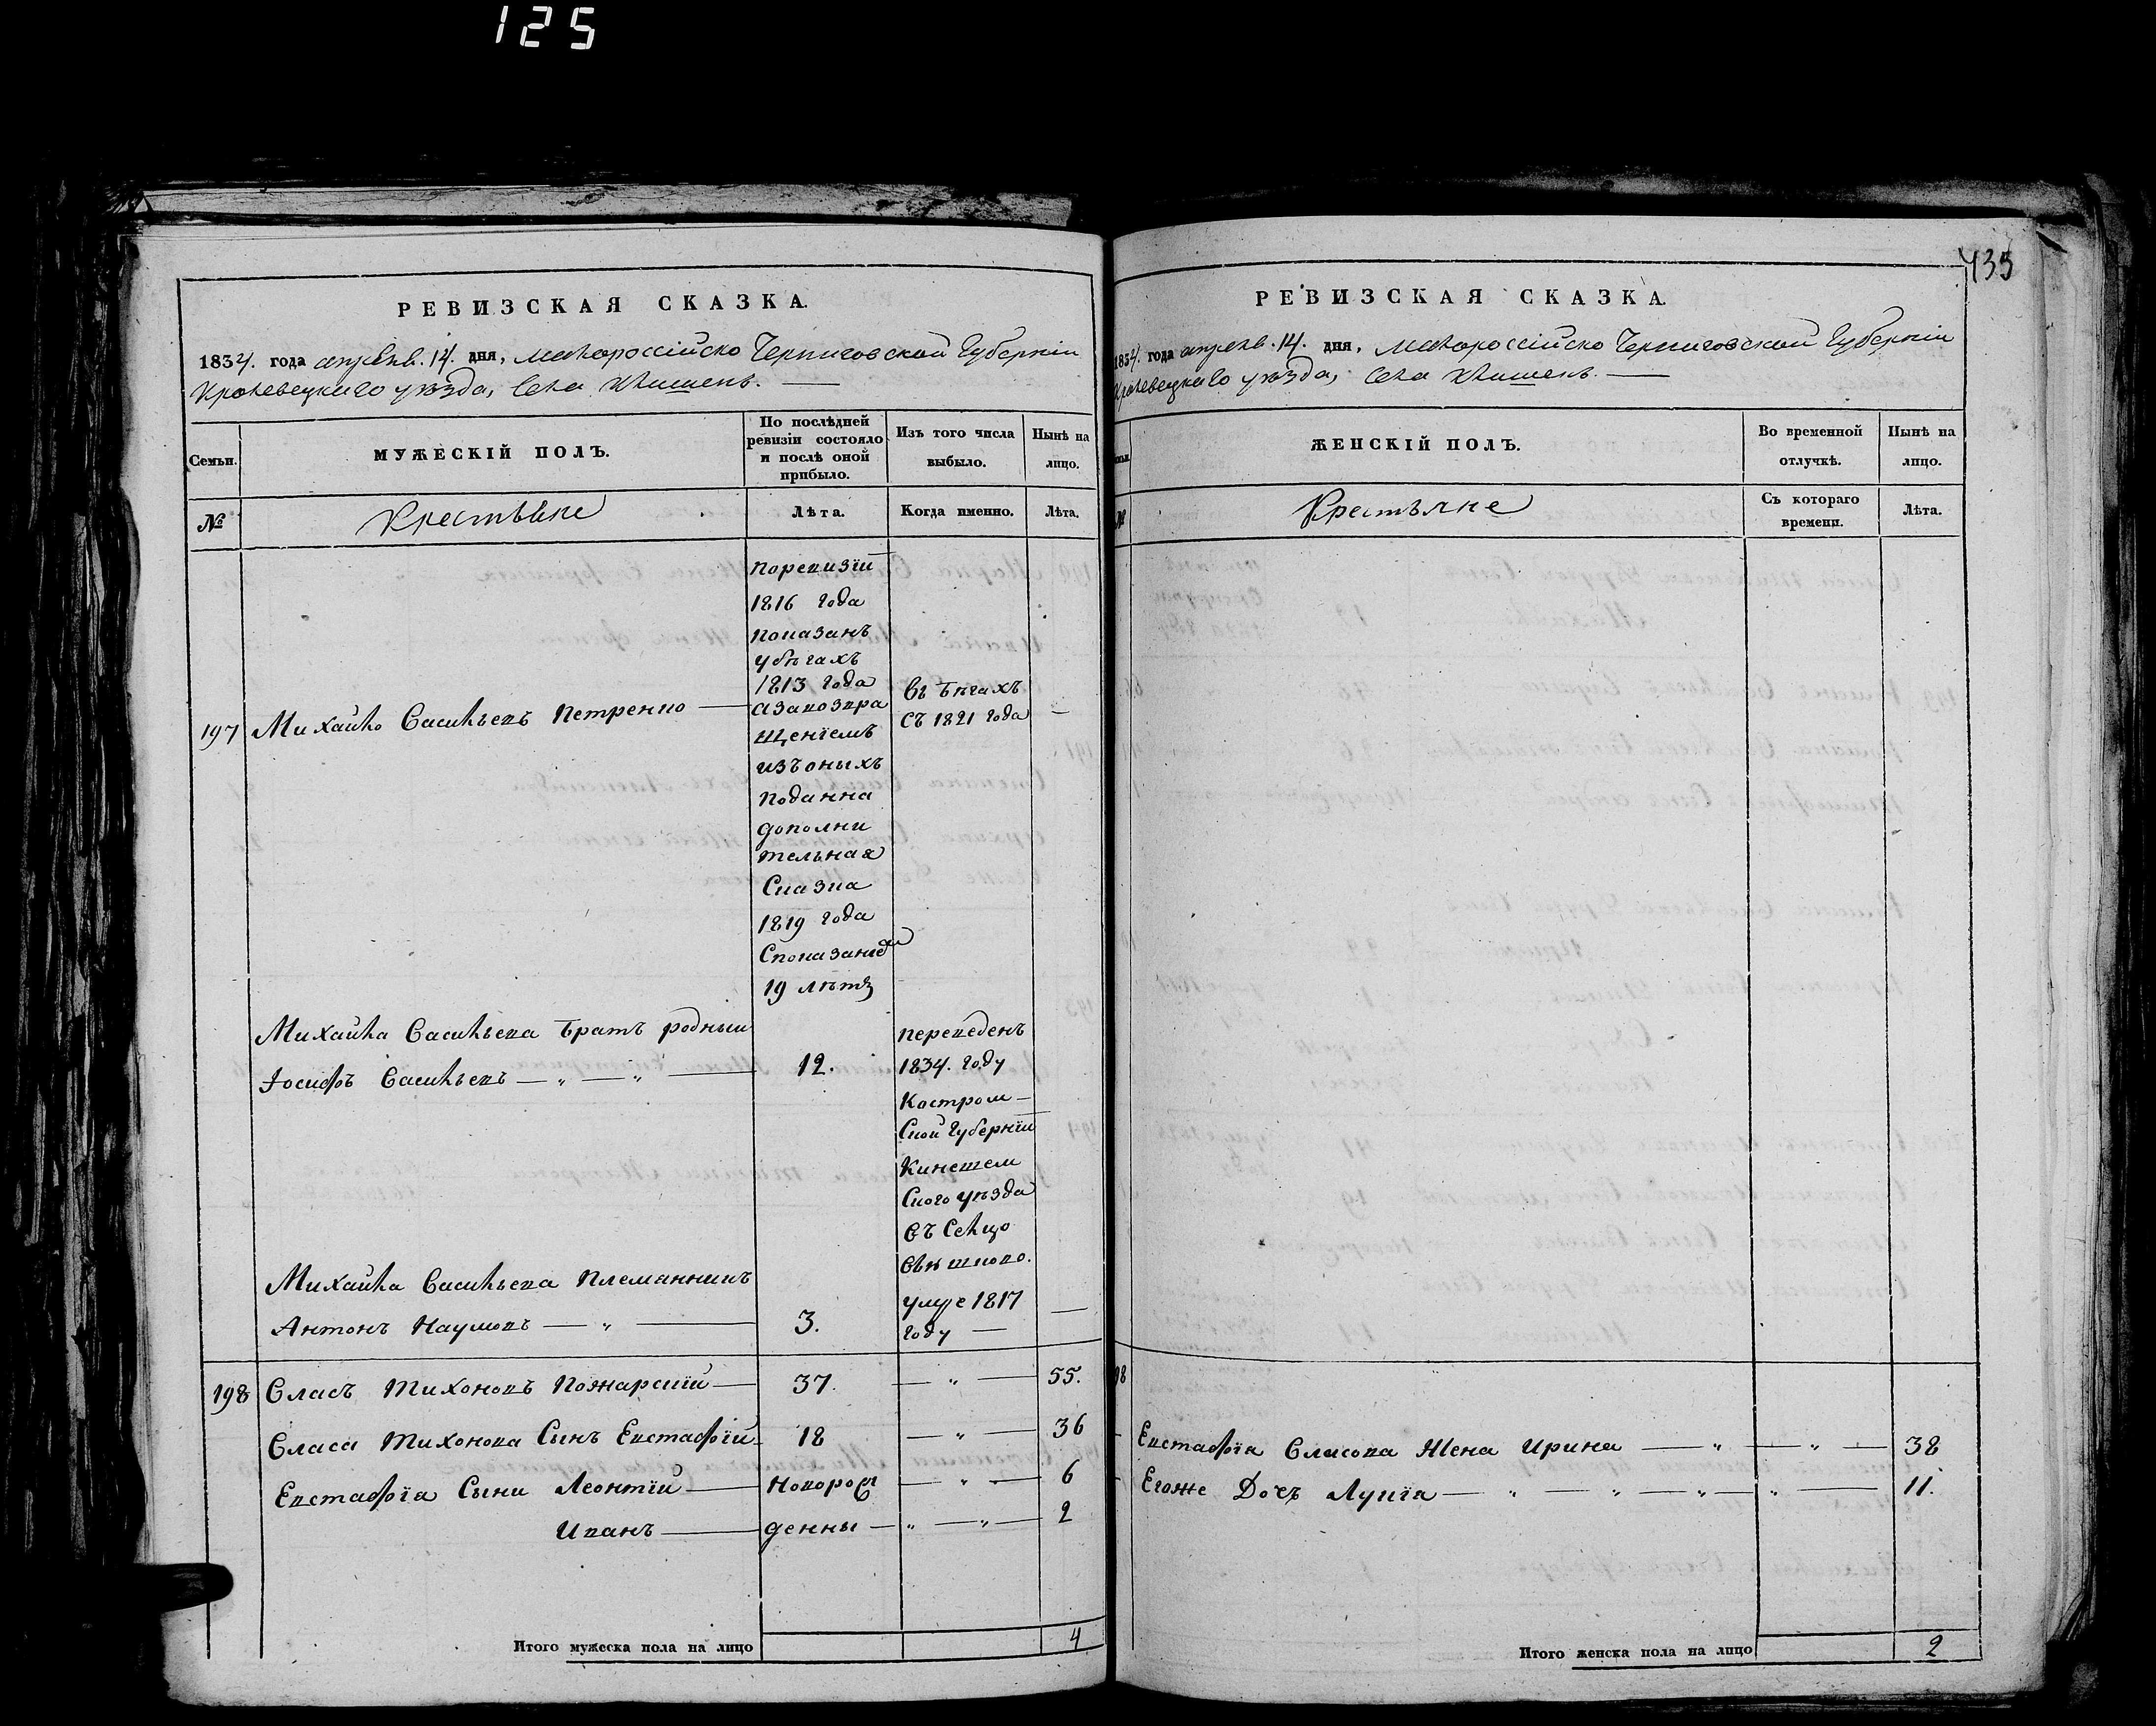 125
435
РЕВИЗСКАЯ СКАЗКА.
1834. года апреля. 14. дня, Малороссійско Черниговской Губерніи
Кролевецкаго уѣзда, Села Клишекъ.
Семьи.
МУЖЕСКІЙ ПОЛЪ.
По послѣдней ревизіи состояло и послѣ оной прибыло.
Изъ того числа выбыло.
Нынѣ на лицо.
№
Крестьяне
Лѣта.
Когда именно.
Лѣта.
поревизіи
1816 года
показанъ
убѣгахъ
1813 года
азавозвра
щеніемъ
изъ оныхъ
поданна
дополни
тельная
Сказка
1819 года
Споказаніем
19 лѣтъ
197 Михайло Васильевъ Петренко
въ бѣгахъ
съ 1821 года —
Михайла Васильева братъ родный
Іосифъ Васильевъ — „ — „ — 12.
переведенъ
1834. году
Костром-
ской Губерніи
Кинешем
ского уѣзда
въ Сельцо
Михайла Васильева Племянникъ
Антонъ Наумовъ — „ — 3.
умре 1817
году — —
198 Власъ Тихоновъ Пожарскій — 37. — „ — 55.
Власа Тихонова Сынъ Евстафій 18 — „ — 36
Евстафія Сыни Леонтій — Новорож — „ — 6
Иванъ — денны — „ — „ — 2
Итого мужеска пола на лицо 4
РЕВИЗСКАЯ СКАЗКА.
1834. года апреля. 14. дня, Малороссійско Черниговской Губерніи
Кролевецкаго уѣзда, Села Клишекъ.
ЖЕНСКІЙ ПОЛЪ.
Во временной отлучкѣ.
Нынѣ на лицо.
№
Крестьяне
Съ котораго времени.
Лѣта.
98
Евстафія Власова Жена Ирина — „ — „ — 38
Егоже Дочъ Лукія — „ — „ — „ — „ — 11.
Итого женска пола на лицо 2